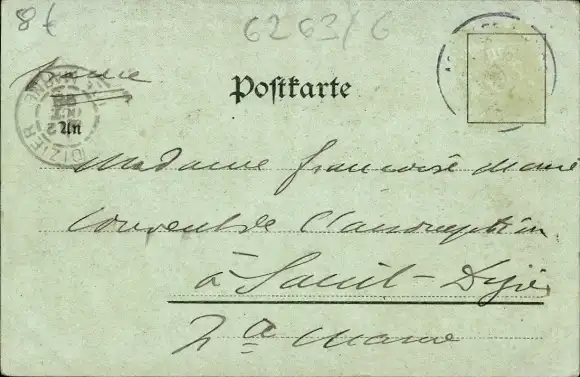 8€
6263/6
France
Postkarte
An
DIZIER
Madame Françoise Marie
Couvent de l'assomption
à Saint-Dizier
Hte Marne